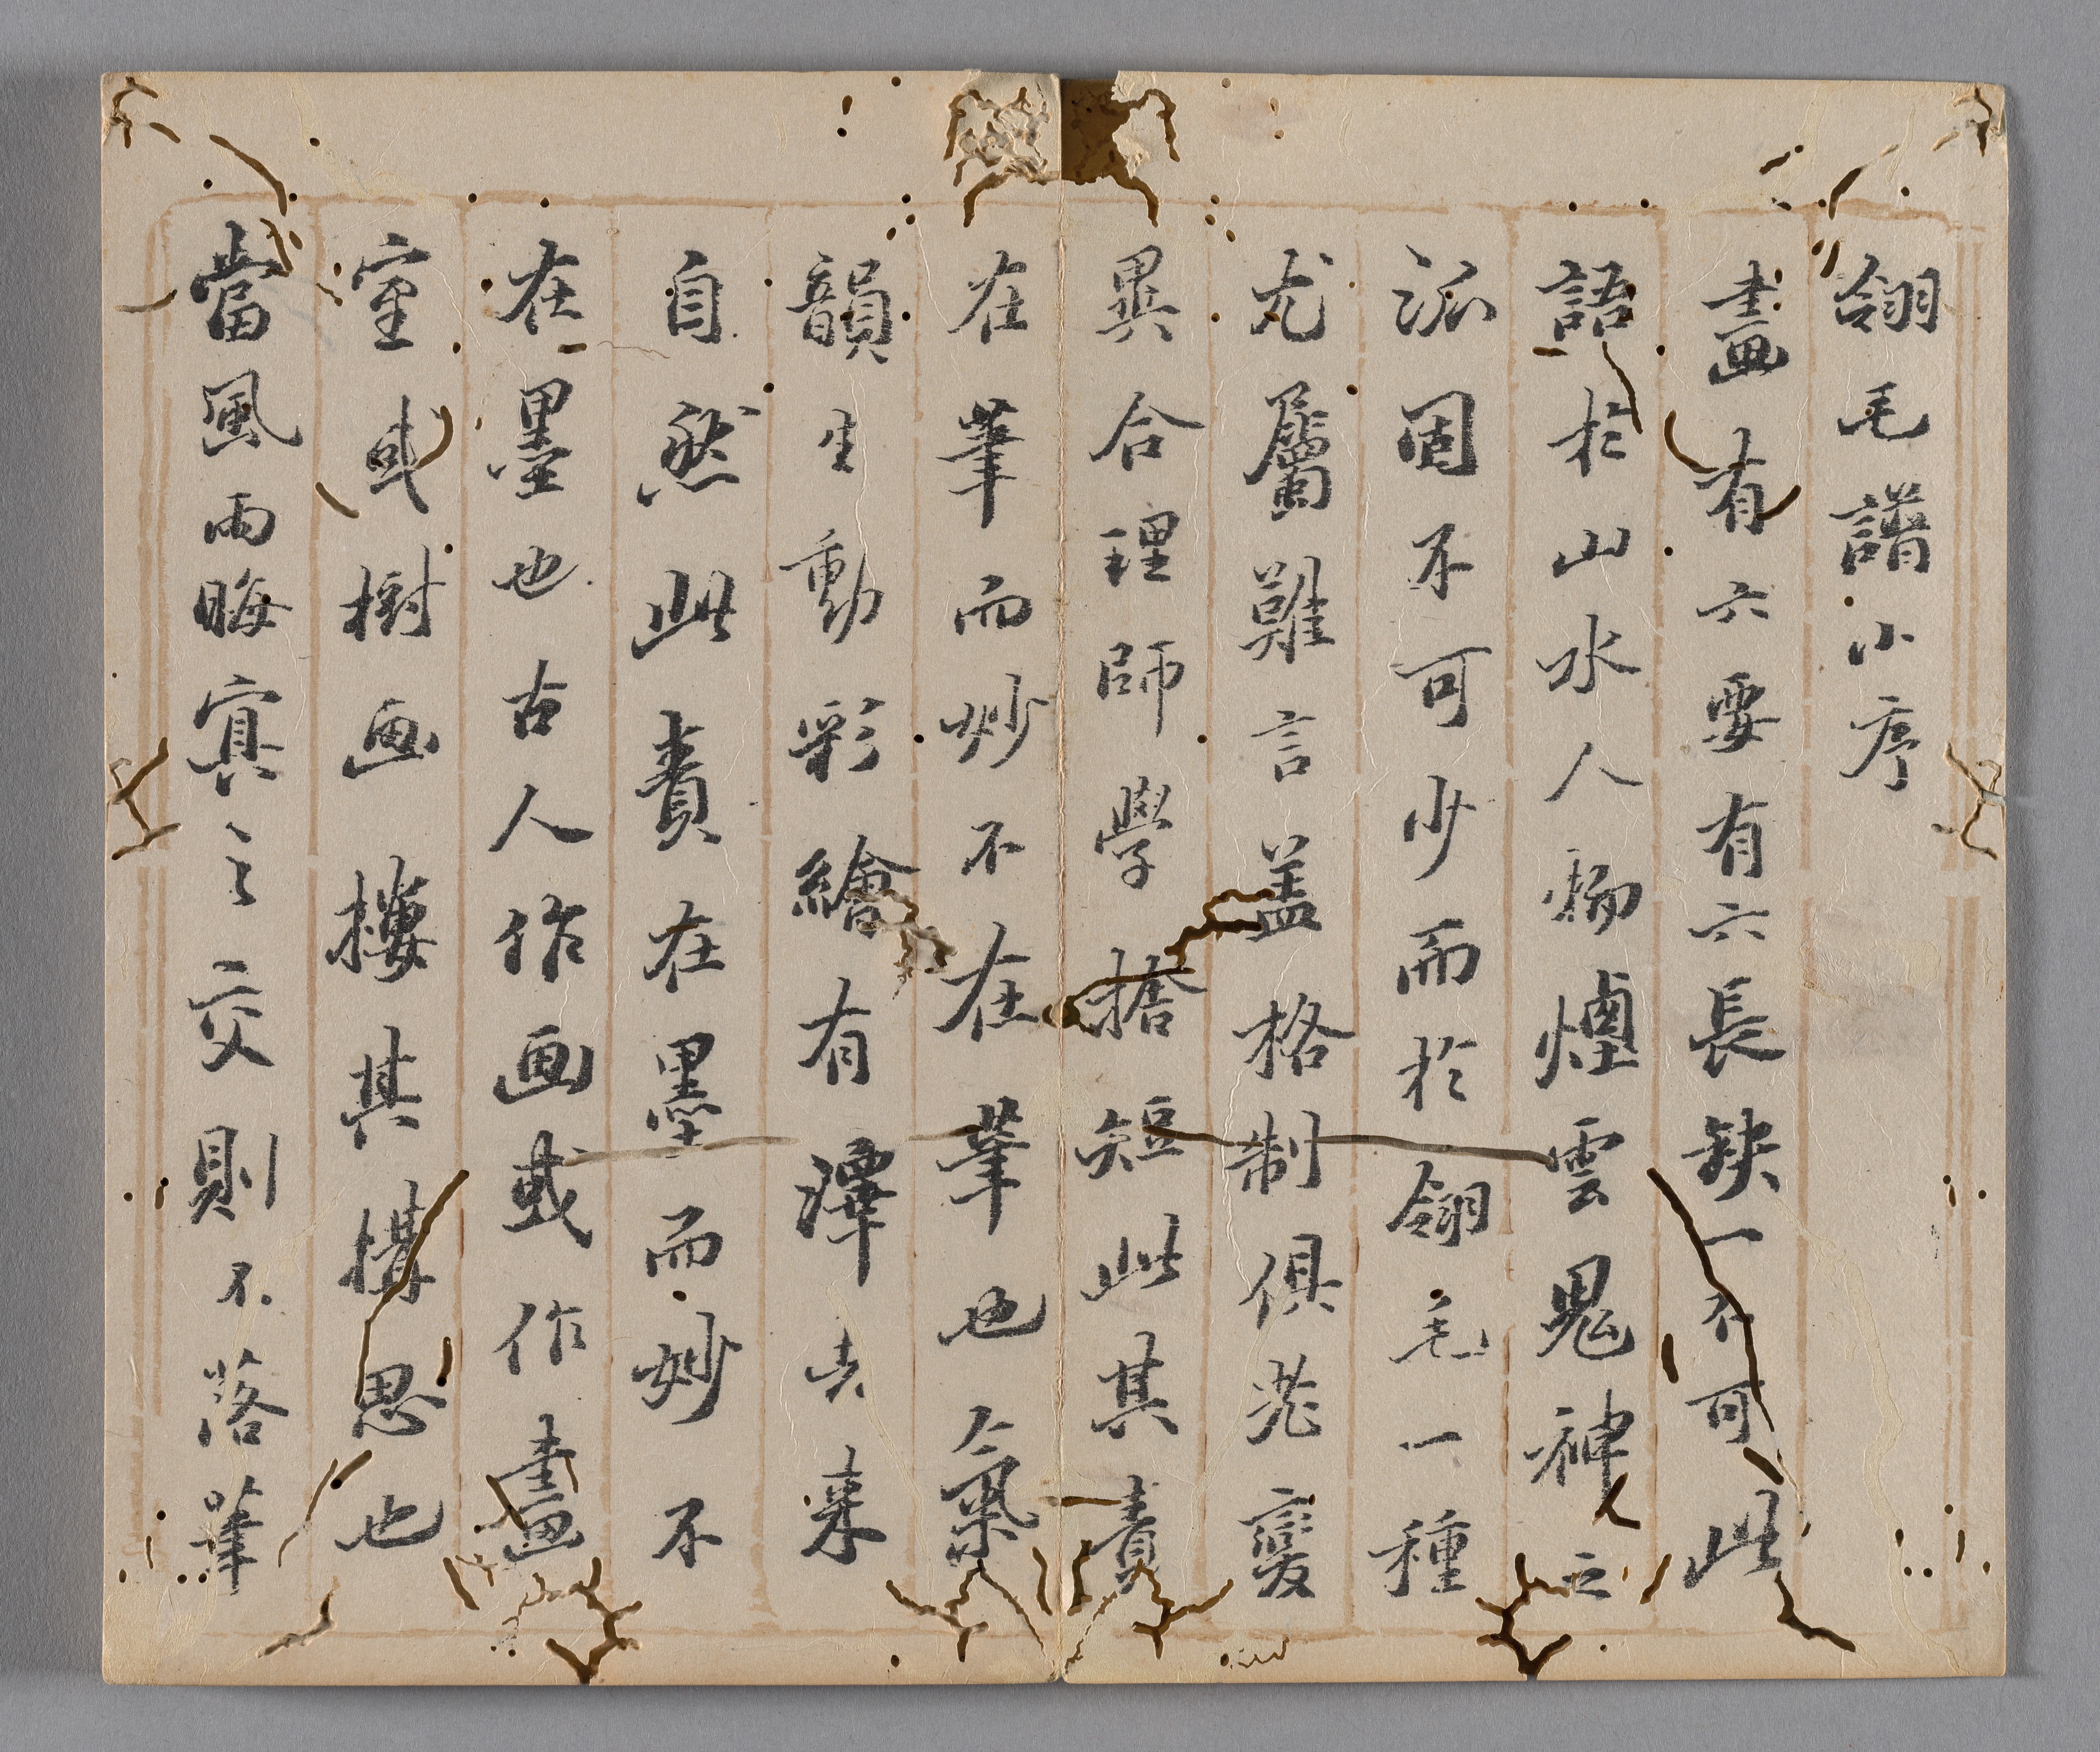 翎毛譜小序
畫有六要有六長缺一不可此
語於山水人物煙雲鬼神之
派固不可少而於翎毛一種
尤屬難言蓋格制俱老變
異合理師學捨短此其責
在筆而妙不在筆也氣
韻生動彩繪有澤去來
自然此責在墨而妙不
在墨也古人作画或作畫
室或樹画樓其搆思也
當風雨晦冥之交則不落筆